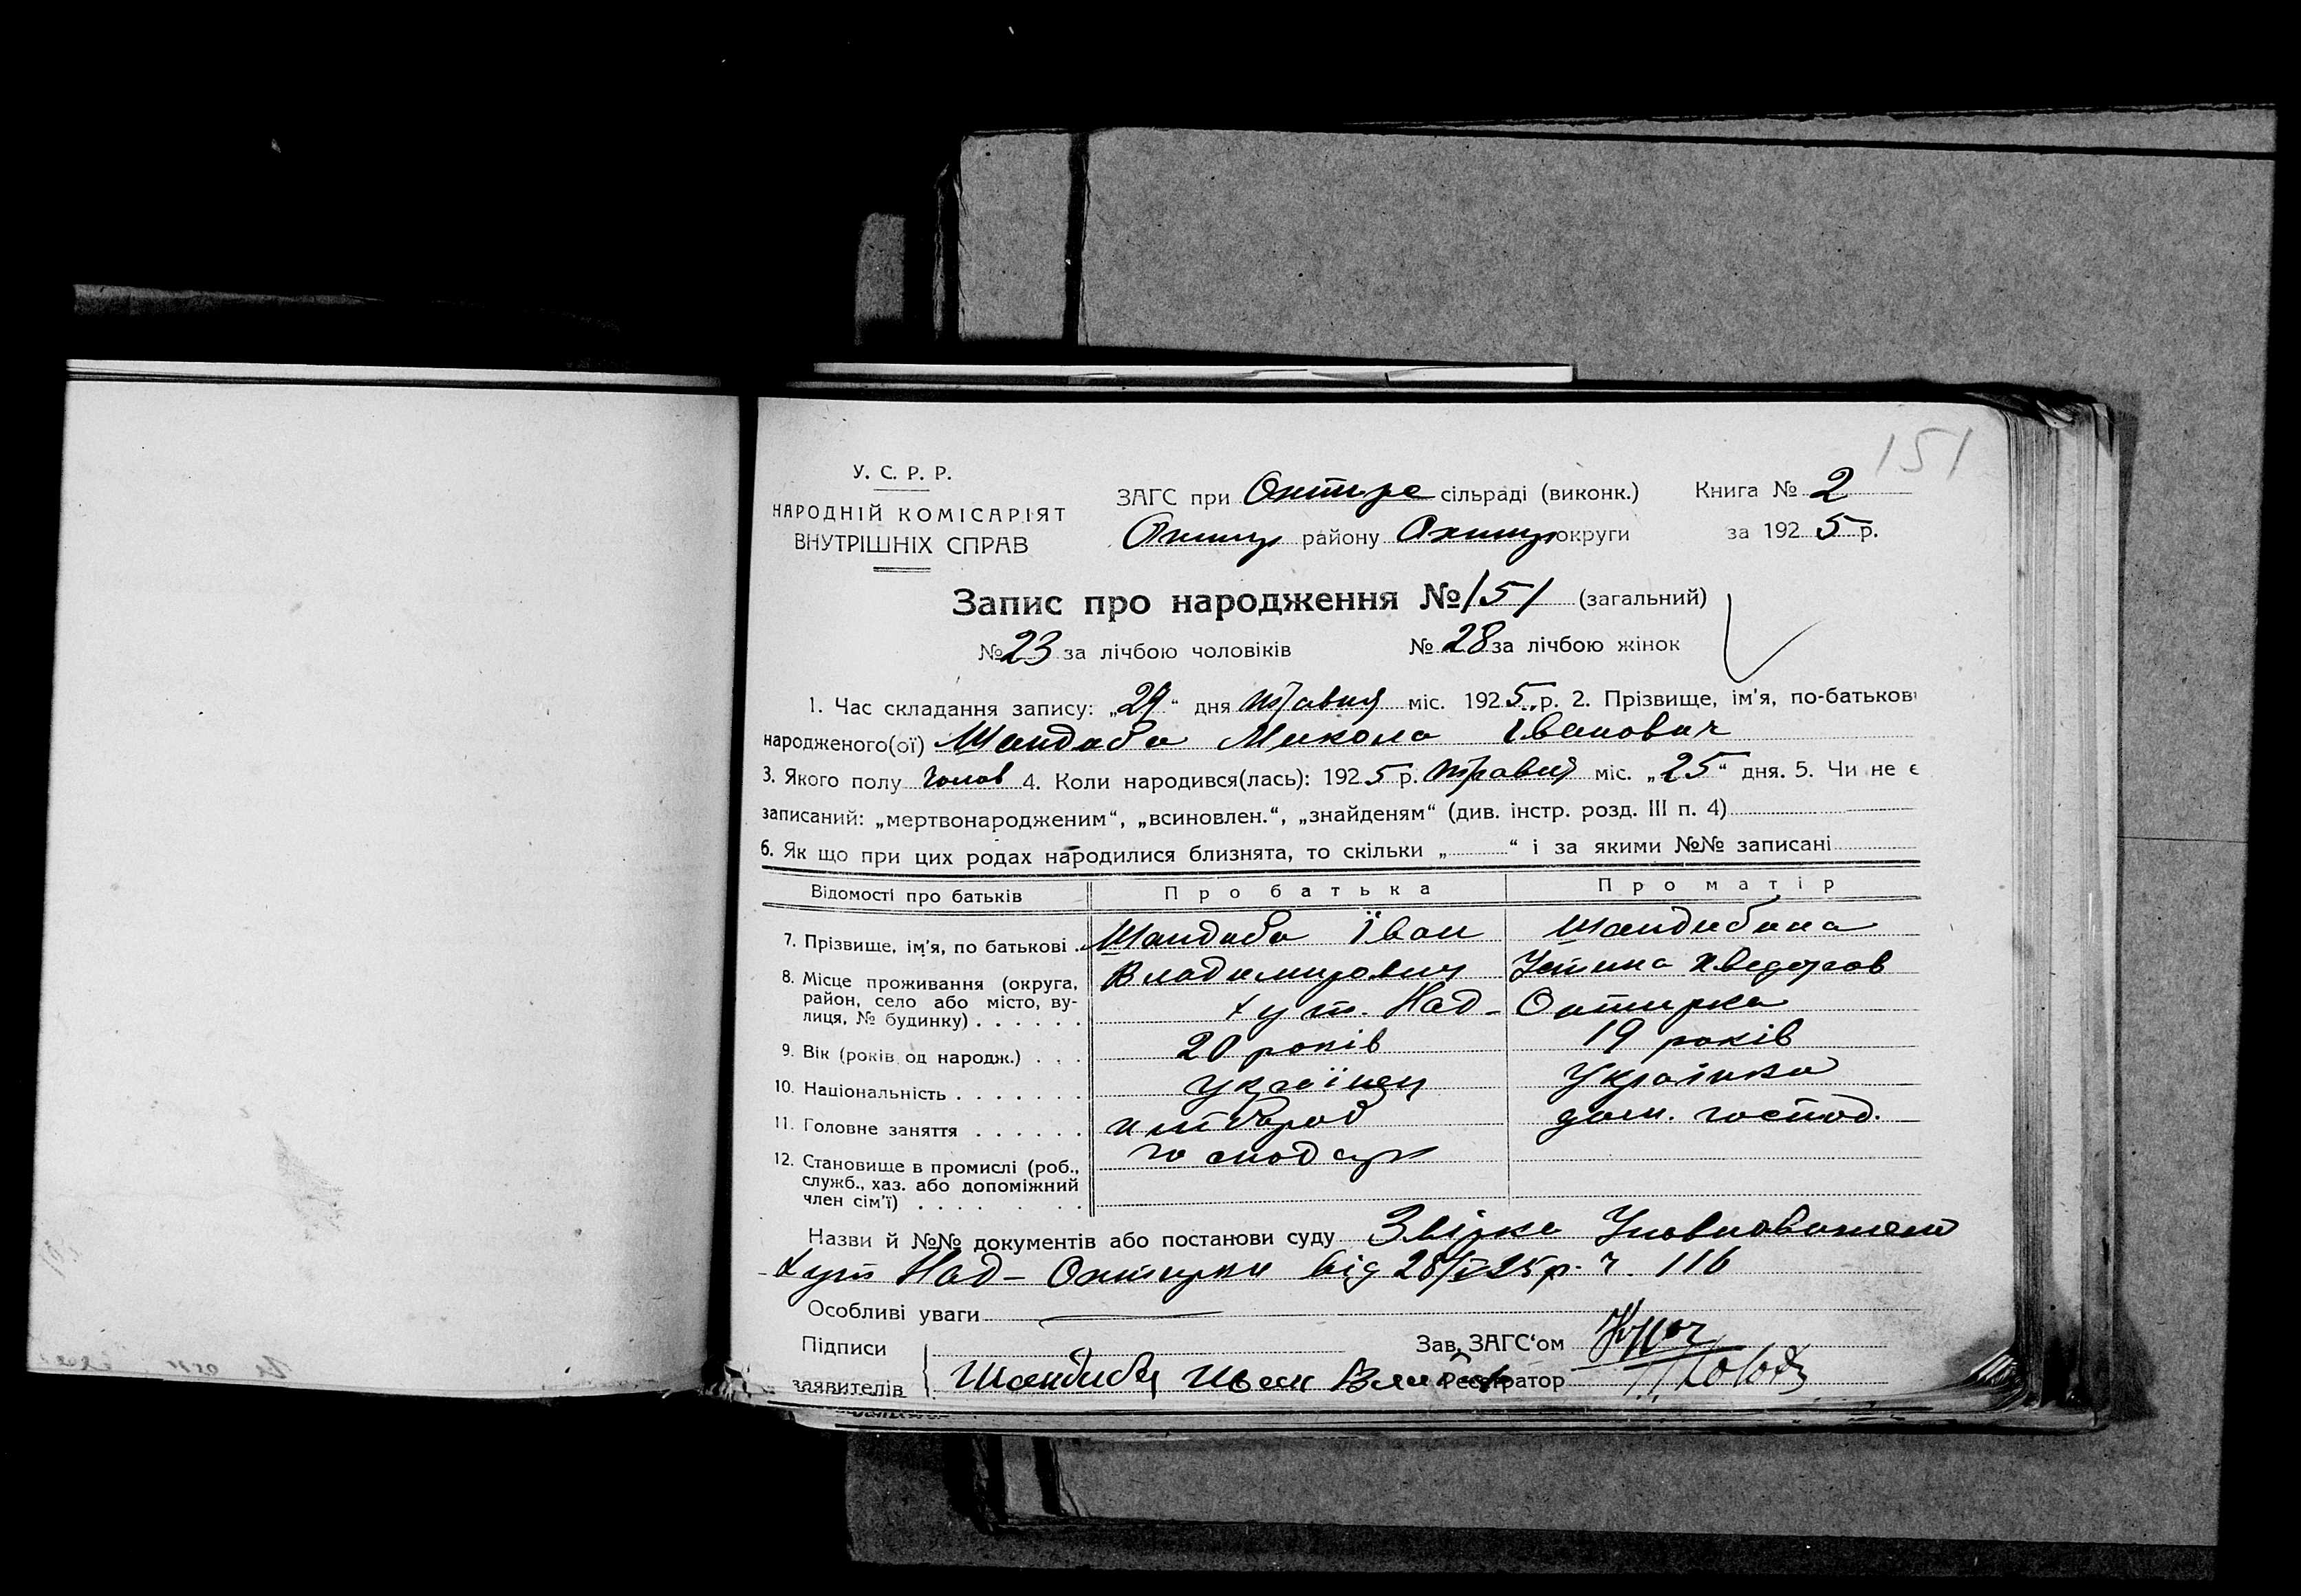 151
У. С. Р. Р.
НАРОДНІЙ КОМІСАРІЯТ
ВНУТРІШНІХ СПРАВ
ЗАГС при Охтирс сільраді (виконк.) Книга № 2
Охтир району Охтир округи за 1925 р.
Запис про народження № 151 (загальний)
№ 23 за лічбою чоловіків № 28 за лічбою жінок
1. Час складання запису: „29“ дня травня міс. 1925 р. 2. Прізвище, ім'я, по-батькові
народженого(ої) Шандиба Микола Іванович
3. Якого полу чолов 4. Коли народився(лась): 1925 р. травня міс. „25“ дня. 5. Чи не є
записаний: „мертвонародженим“, „всиновлен.“, „знайденям“ (див. інстр. розд. III п. 4)
6. Як що при цих родах народилися близнята, то скільки „ “ і за якими №№ записані
Відомості про батьків Про батька Про матір
7. Прізвище, ім'я, по батькові . Шандиба Іван Шандибина
Владимирович Устина Хведоров
8. Місце проживання (округа,
район, село або місто, ву-
лиця, № будинку) . . . . . . хут. Над- Охтирка
9. Вік (років од народж.) . . . 20 років 19 років
10. Національність . . . . . . . українец Українка
11. Головне заняття . . . . . . хлібороб дом. господ.
12. Становище в промислі (роб.,
служб., хаз. або допоміжний
член сім'ї) . . . . . . . господар
Назви й №№ документів або постанови суду Звірке Уповноваженого
хут Над-Охтирки від 28/V 25 р. ч. 116
Особливі уваги
Підписи Зав. ЗАГС'ом
заявителів Шандиба Иван Реєстратор